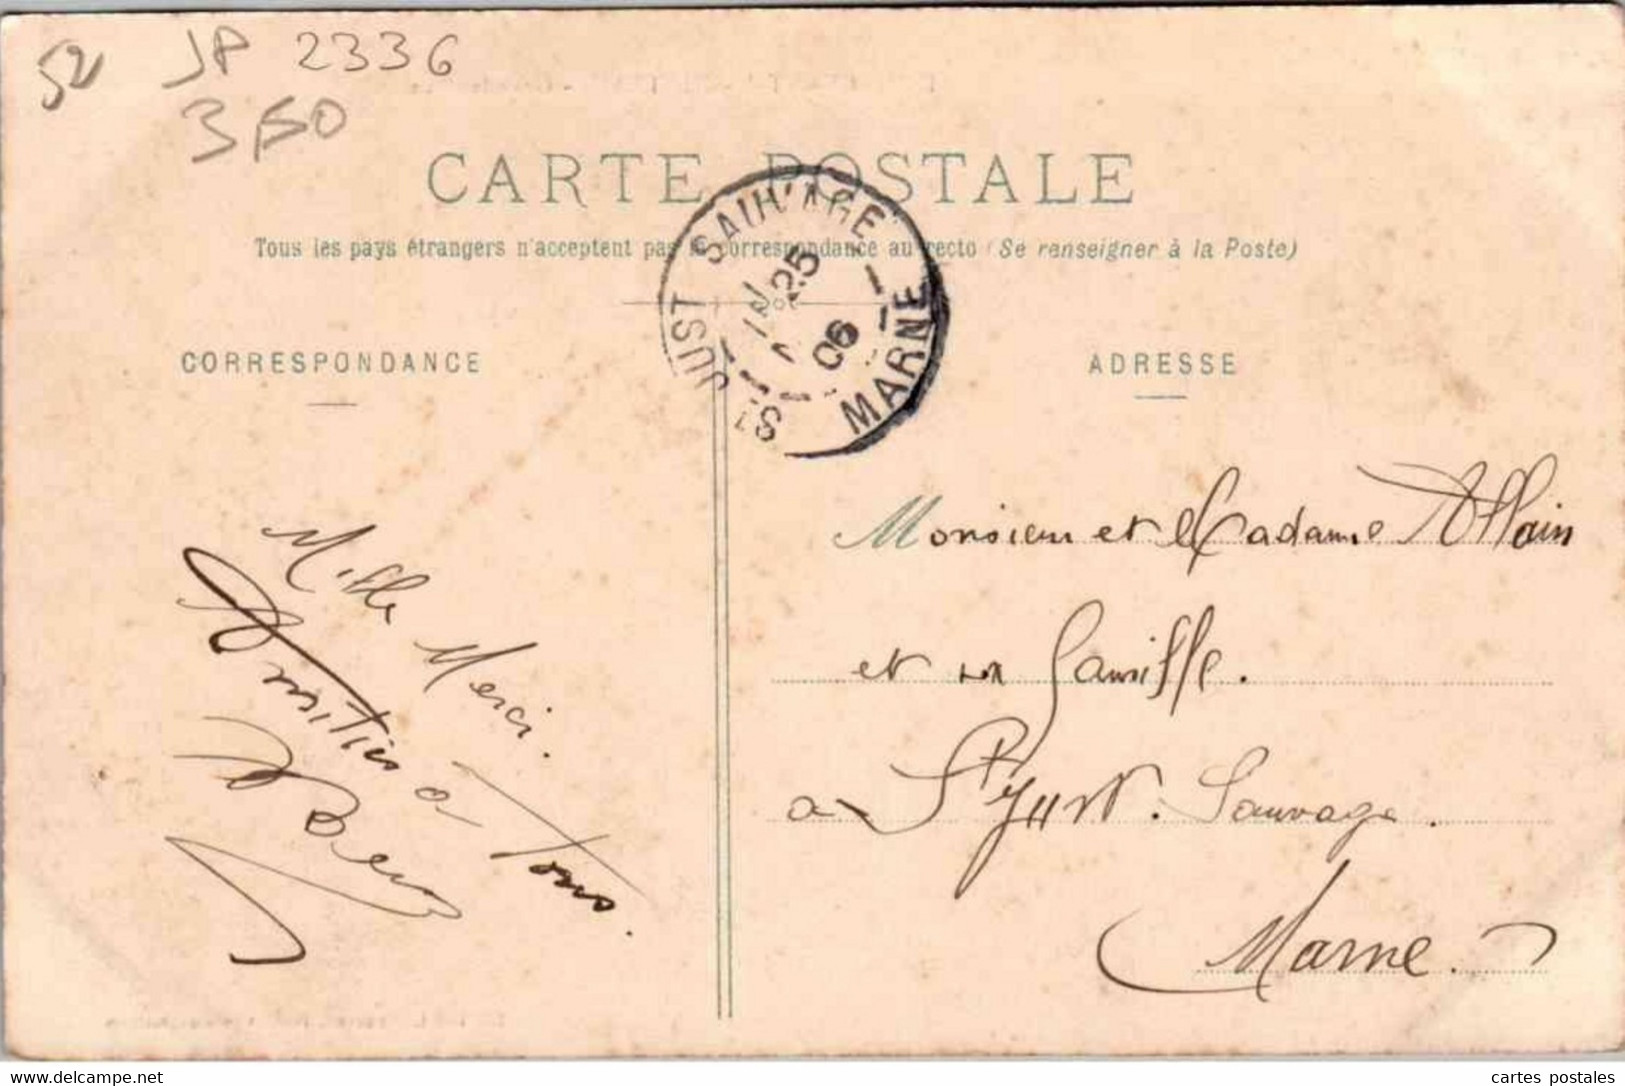 52 JP 2336
3,50
CARTE POSTALE
Tous les pays étrangers n'acceptent pas la correspondance au recto (Se renseigner à la Poste)
ST JUST SAUVAGE
25
06
MARNE
CORRESPONDANCE
Mille Merci.
Amitiés à Tous.
ADRESSE
Monsieur et Madame Allain
et sa famille.
a St Just. Sauvage.
Marne.
www.delcampe.net
cartes postales